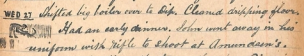 WED 27 Shifted big boiler over to Dip. Cleaned dipping floor.
Had an early dinner. John went away in his
uniform with rifle to shoot at Amundsen's